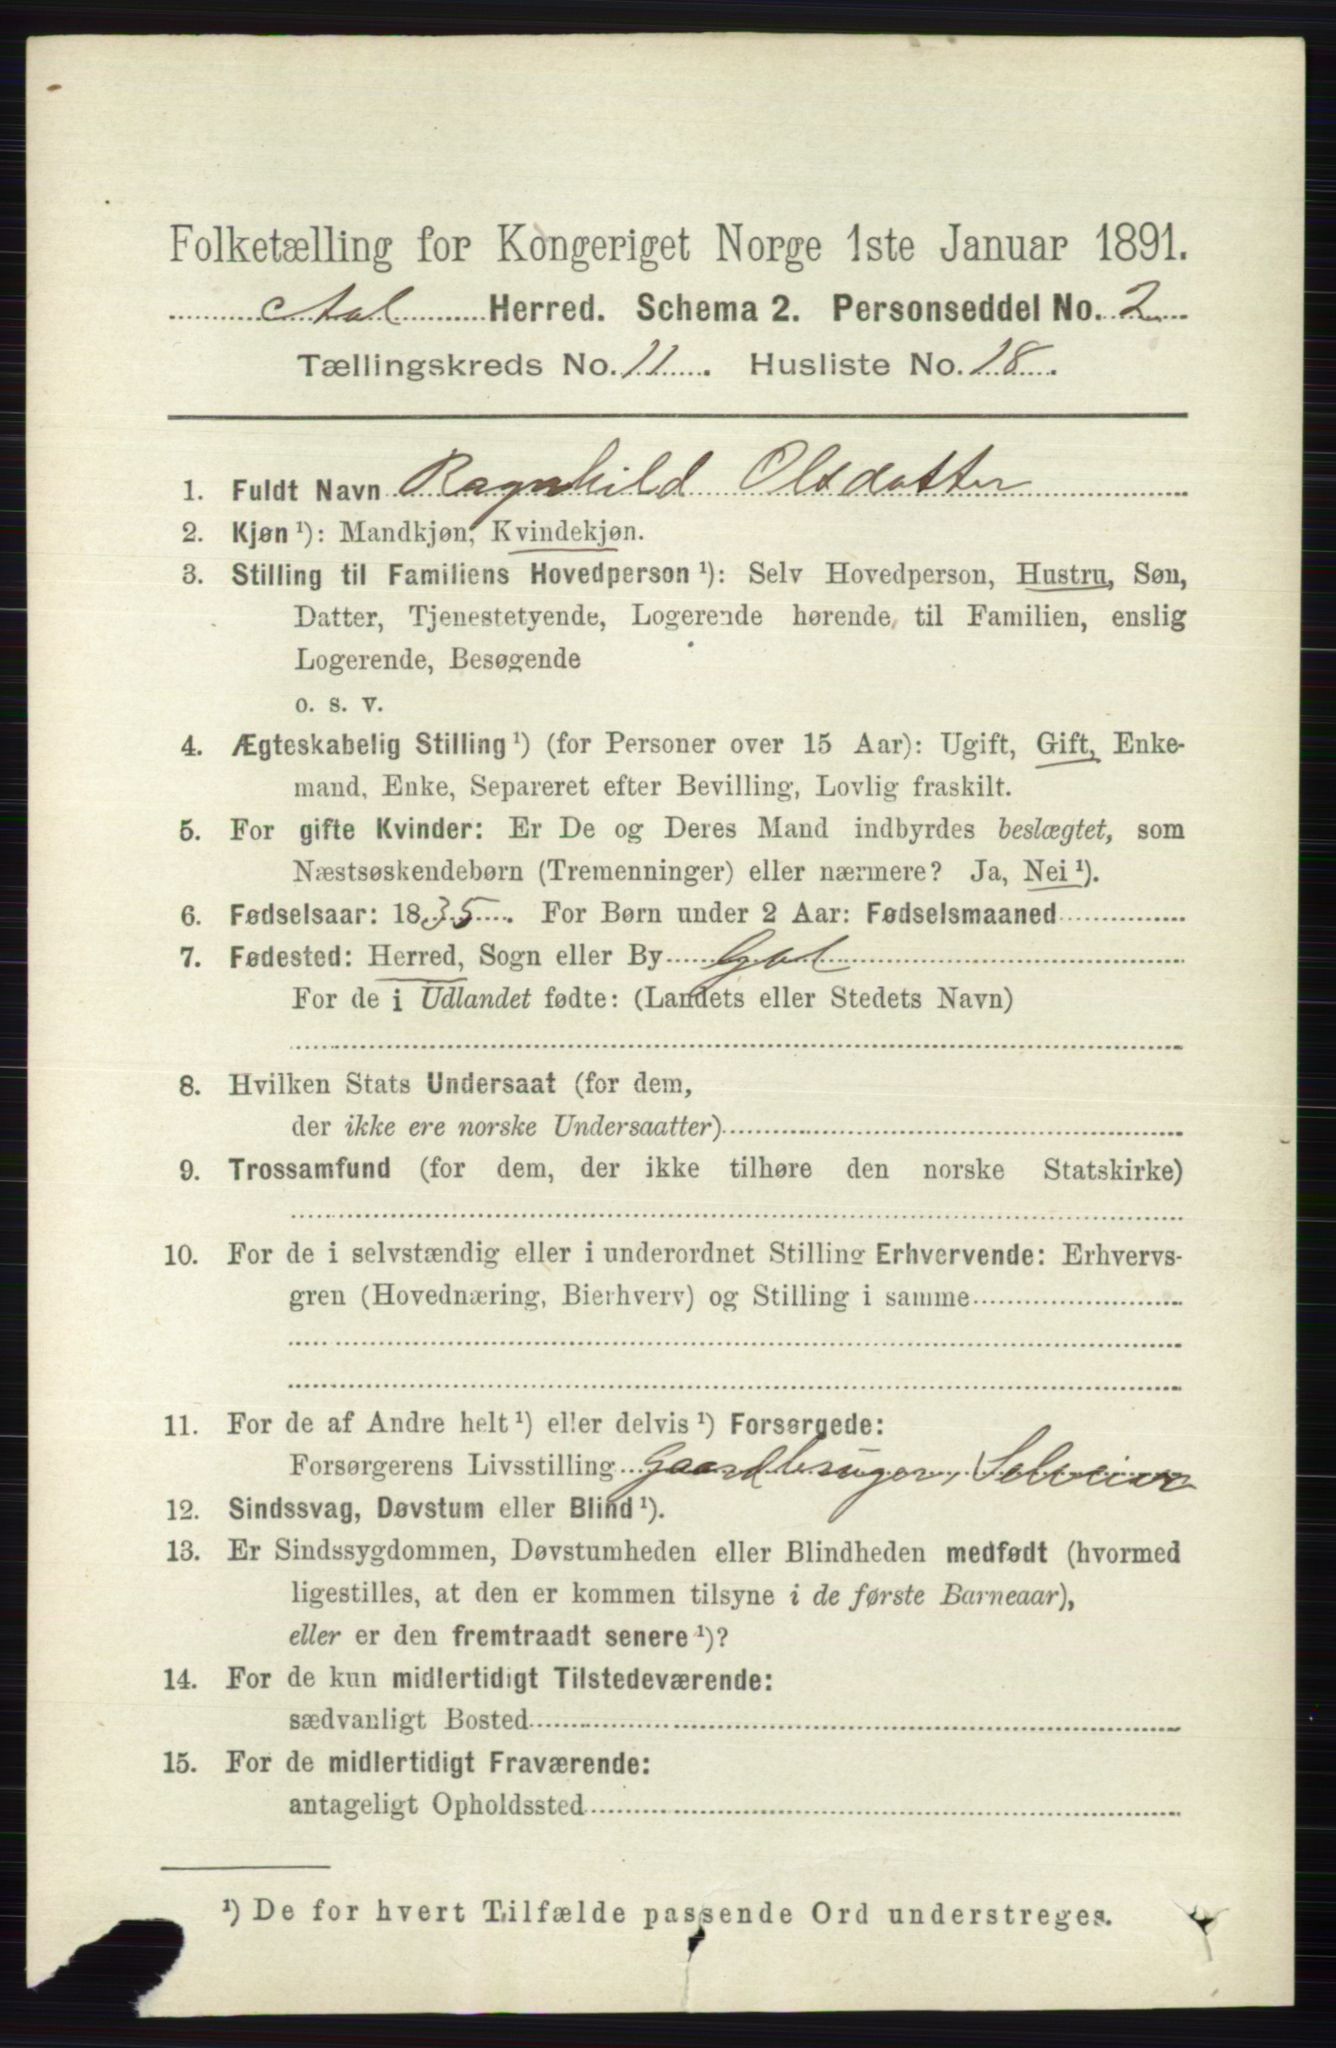 Folketælling for Kongeriget Norge 1ste Januar 1891.
Aal Herred. Schema 2. Personseddel No. 2
Tællingskreds No. 11. Husliste No. 18.
1. Fuldt Navn Ragnhild Olsdatter
2. Kjøn ¹): Mandkjøn, Kvindekjøn.
3. Stilling til Familiens Hovedperson ¹): Selv Hovedperson, Hustru, Søn,
Datter, Tjenestetyende, Logerende hørende til Familien, enslig
Logerende, Besøgende
o. s. v.
4. Ægteskabelig Stilling ¹) (for Personer over 15 Aar): Ugift, Gift, Enke-
mand, Enke, Separeret efter Bevilling, Lovlig fraskilt.
5. For gifte Kvinder: Er De og Deres Mand indbyrdes beslægtet, som
Næstsøskendebørn (Tremenninger) eller nærmere? Ja, Nei ¹).
6. Fødselsaar: 1835. For Børn under 2 Aar: Fødselsmaaned
7. Fødested: Herred, Sogn eller By Gol
For de i Udlandet fødte: (Landets eller Stedets Navn)
8. Hvilken Stats Undersaat (for dem,
der ikke ere norske Undersaatter)
9. Trossamfund (for dem, der ikke tilhøre den norske Statskirke)
10. For de i selvstændig eller i underordnet Stilling Erhvervende: Erhvervs-
gren (Hovednæring, Bierhverv) og Stilling i samme
11. For de af Andre helt ¹) eller delvis ¹) Forsørgede:
Forsørgerens Livsstilling Gaardbruger, Selveier
12. Sindssvag, Døvstum eller Blind ¹).
13. Er Sindssygdommen, Døvstumheden eller Blindheden medfødt (hvormed
ligestilles, at den er kommen tilsyne i de første Barneaar),
eller er den fremtraadt senere ¹)?
14. For de kun midlertidigt Tilstedeværende:
sædvanligt Bosted
15. For de midlertidigt Fraværende:
antageligt Opholdssted
¹) De for hvert Tilfælde passende Ord understreges.